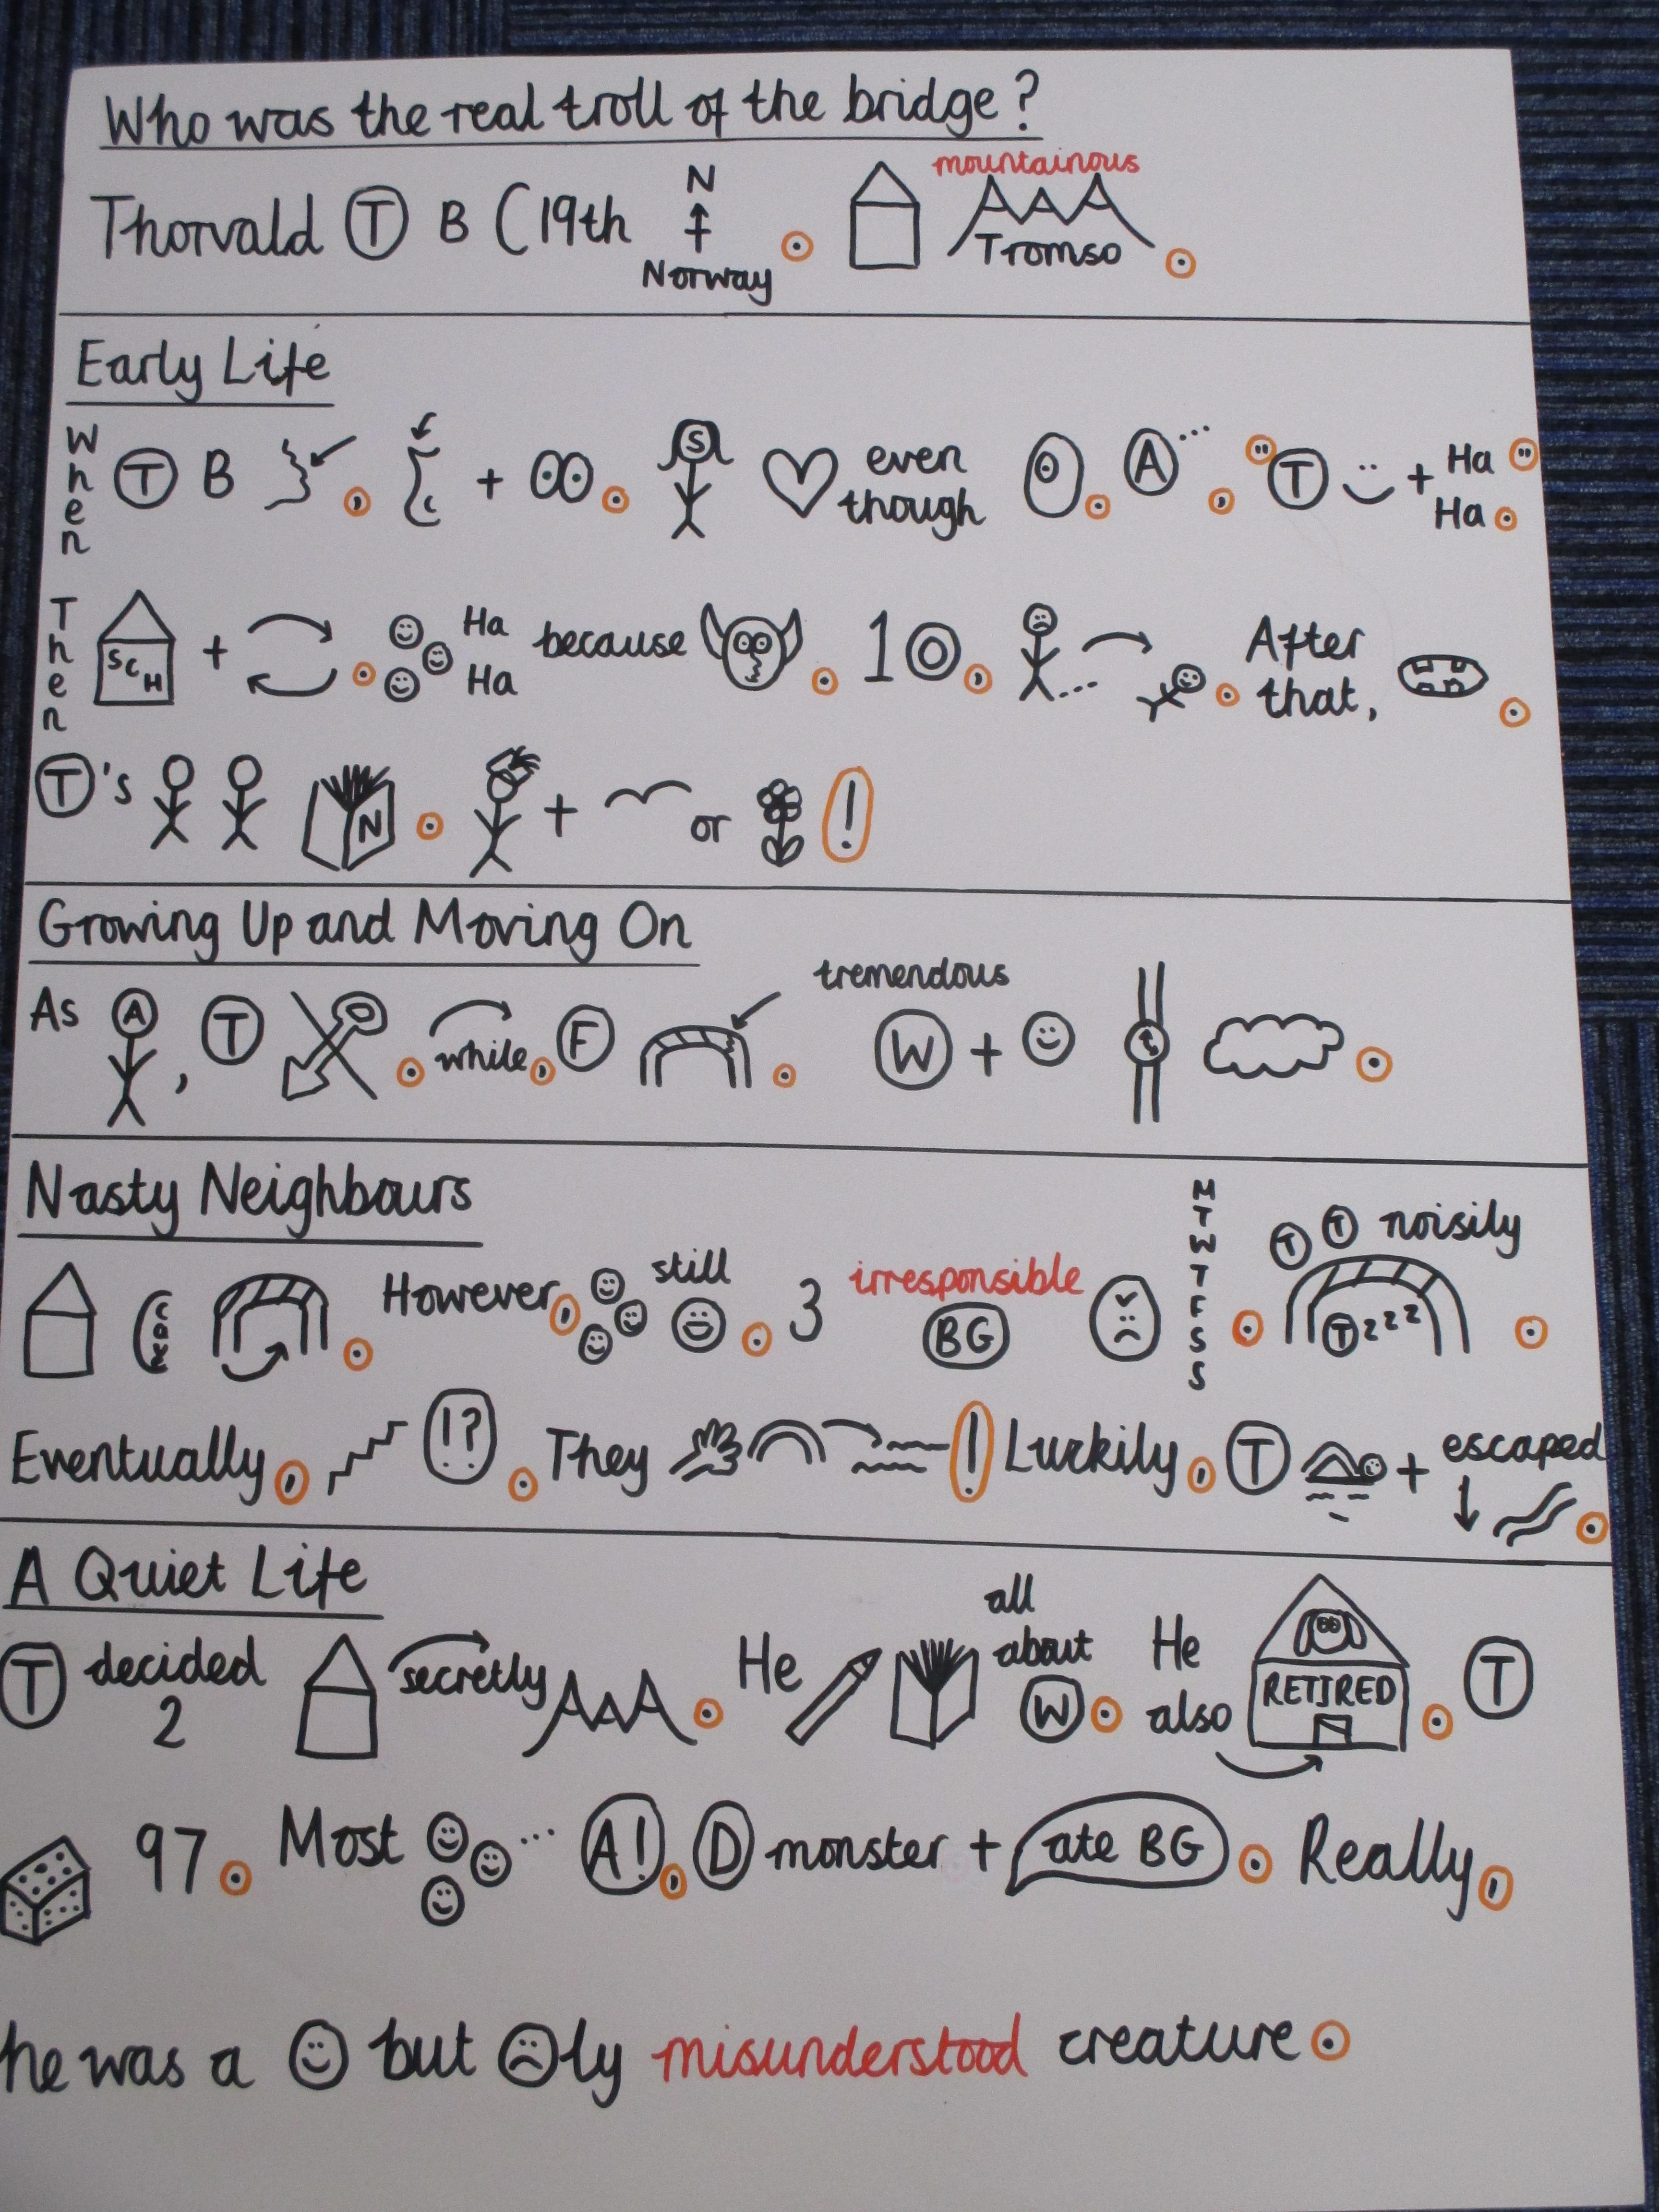 Who was the real troll of the bridge?
mountainous
Thorvald T B (19th N Norway Tromso
Early Life
When T B , + . S even though . A... , " T + Ha Ha " .
Then SCH + . Ha Ha because . 10 , . After that, .
T's N . + or !
Growing Up and Moving On
tremendous
As A, T . while, F . W + .
Nasty Neighbours
MTWTFSS
T T noisily
cosy . However, still . 3 irresponsible BG . T zzz .
Eventually, !? . They ! Luckily, T + escaped .
A Quiet Life
T decided 2 secretly . He all about W . He also RETIRED . T
97 . Most ... A! , D monster + ate BG . Really,
he was a but ly misunderstood creature .